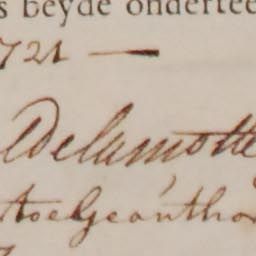 s beyde ondertee
721 —
Delamotte
toegeautho